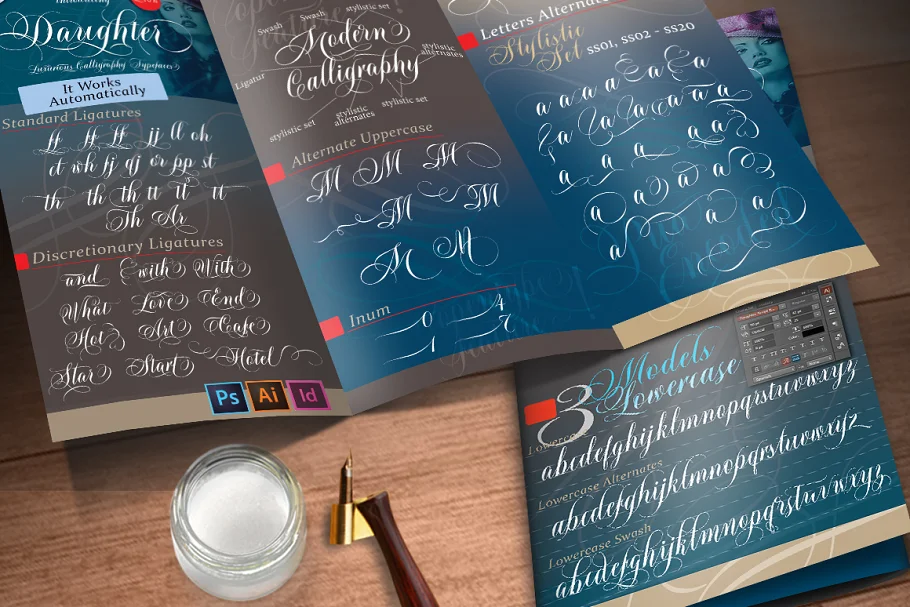 Introducing
Daughter
Luxurious Calligraphy Typefaces
It Works
Automatically
Standard Ligatures
ff ff ff jj ll oh
ct wh fj gj or pp st
th th th tt tt tt
Th Ar
Discretionary Ligatures
and with With
What Love End
Hot Art Cafe
Star Start Hotel
Ps Ai Id
Swash
Swash
stylistic set
Modern
Calligraphy
stylistic
alternates
Ligatur
stylistic set
stylistic
alternates
stylistic set
Alternate Uppercase
M M M
M M
M M
lnum
0 4
1 7
Letters Alternate
Stylistic
Set SS01, SS02 - SS20
a a a a a a
a a a a a
a a a a
a a a a
a a a
a
3 Models
Lowercase
Lowercase
abcdefghijklmnopqrstuvwxyz
Lowercase Alternates
abcdefghijklmnopqrstuvwxyz
Lowercase Swash
abcdefghijklmnopqrstuvwxyz